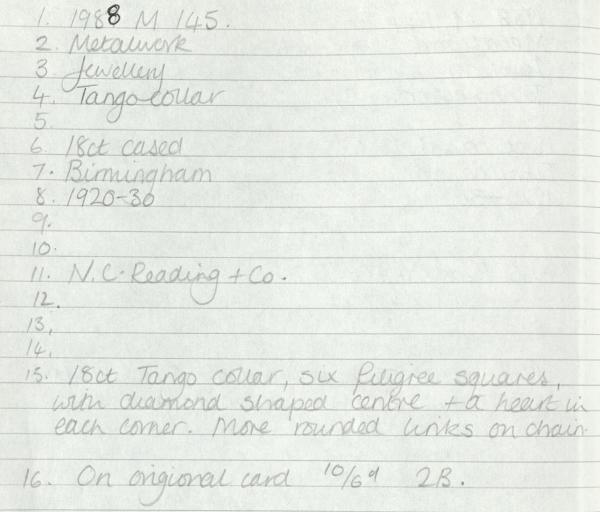 1. 1988 M 145.
2. Metalwork
3 Jewellery
4. Tango collar
5.
6. 18ct cased
7. Birmingham
8. 1920-30
9.
10.
11. N.C. Reading + Co.
12.
13.
14.
15. 18ct Tango collar, six filigree squares,
with diamond shaped centre + a heart in
each corner. More rounded links on chain.
16. On origional card 10/6d 2B.